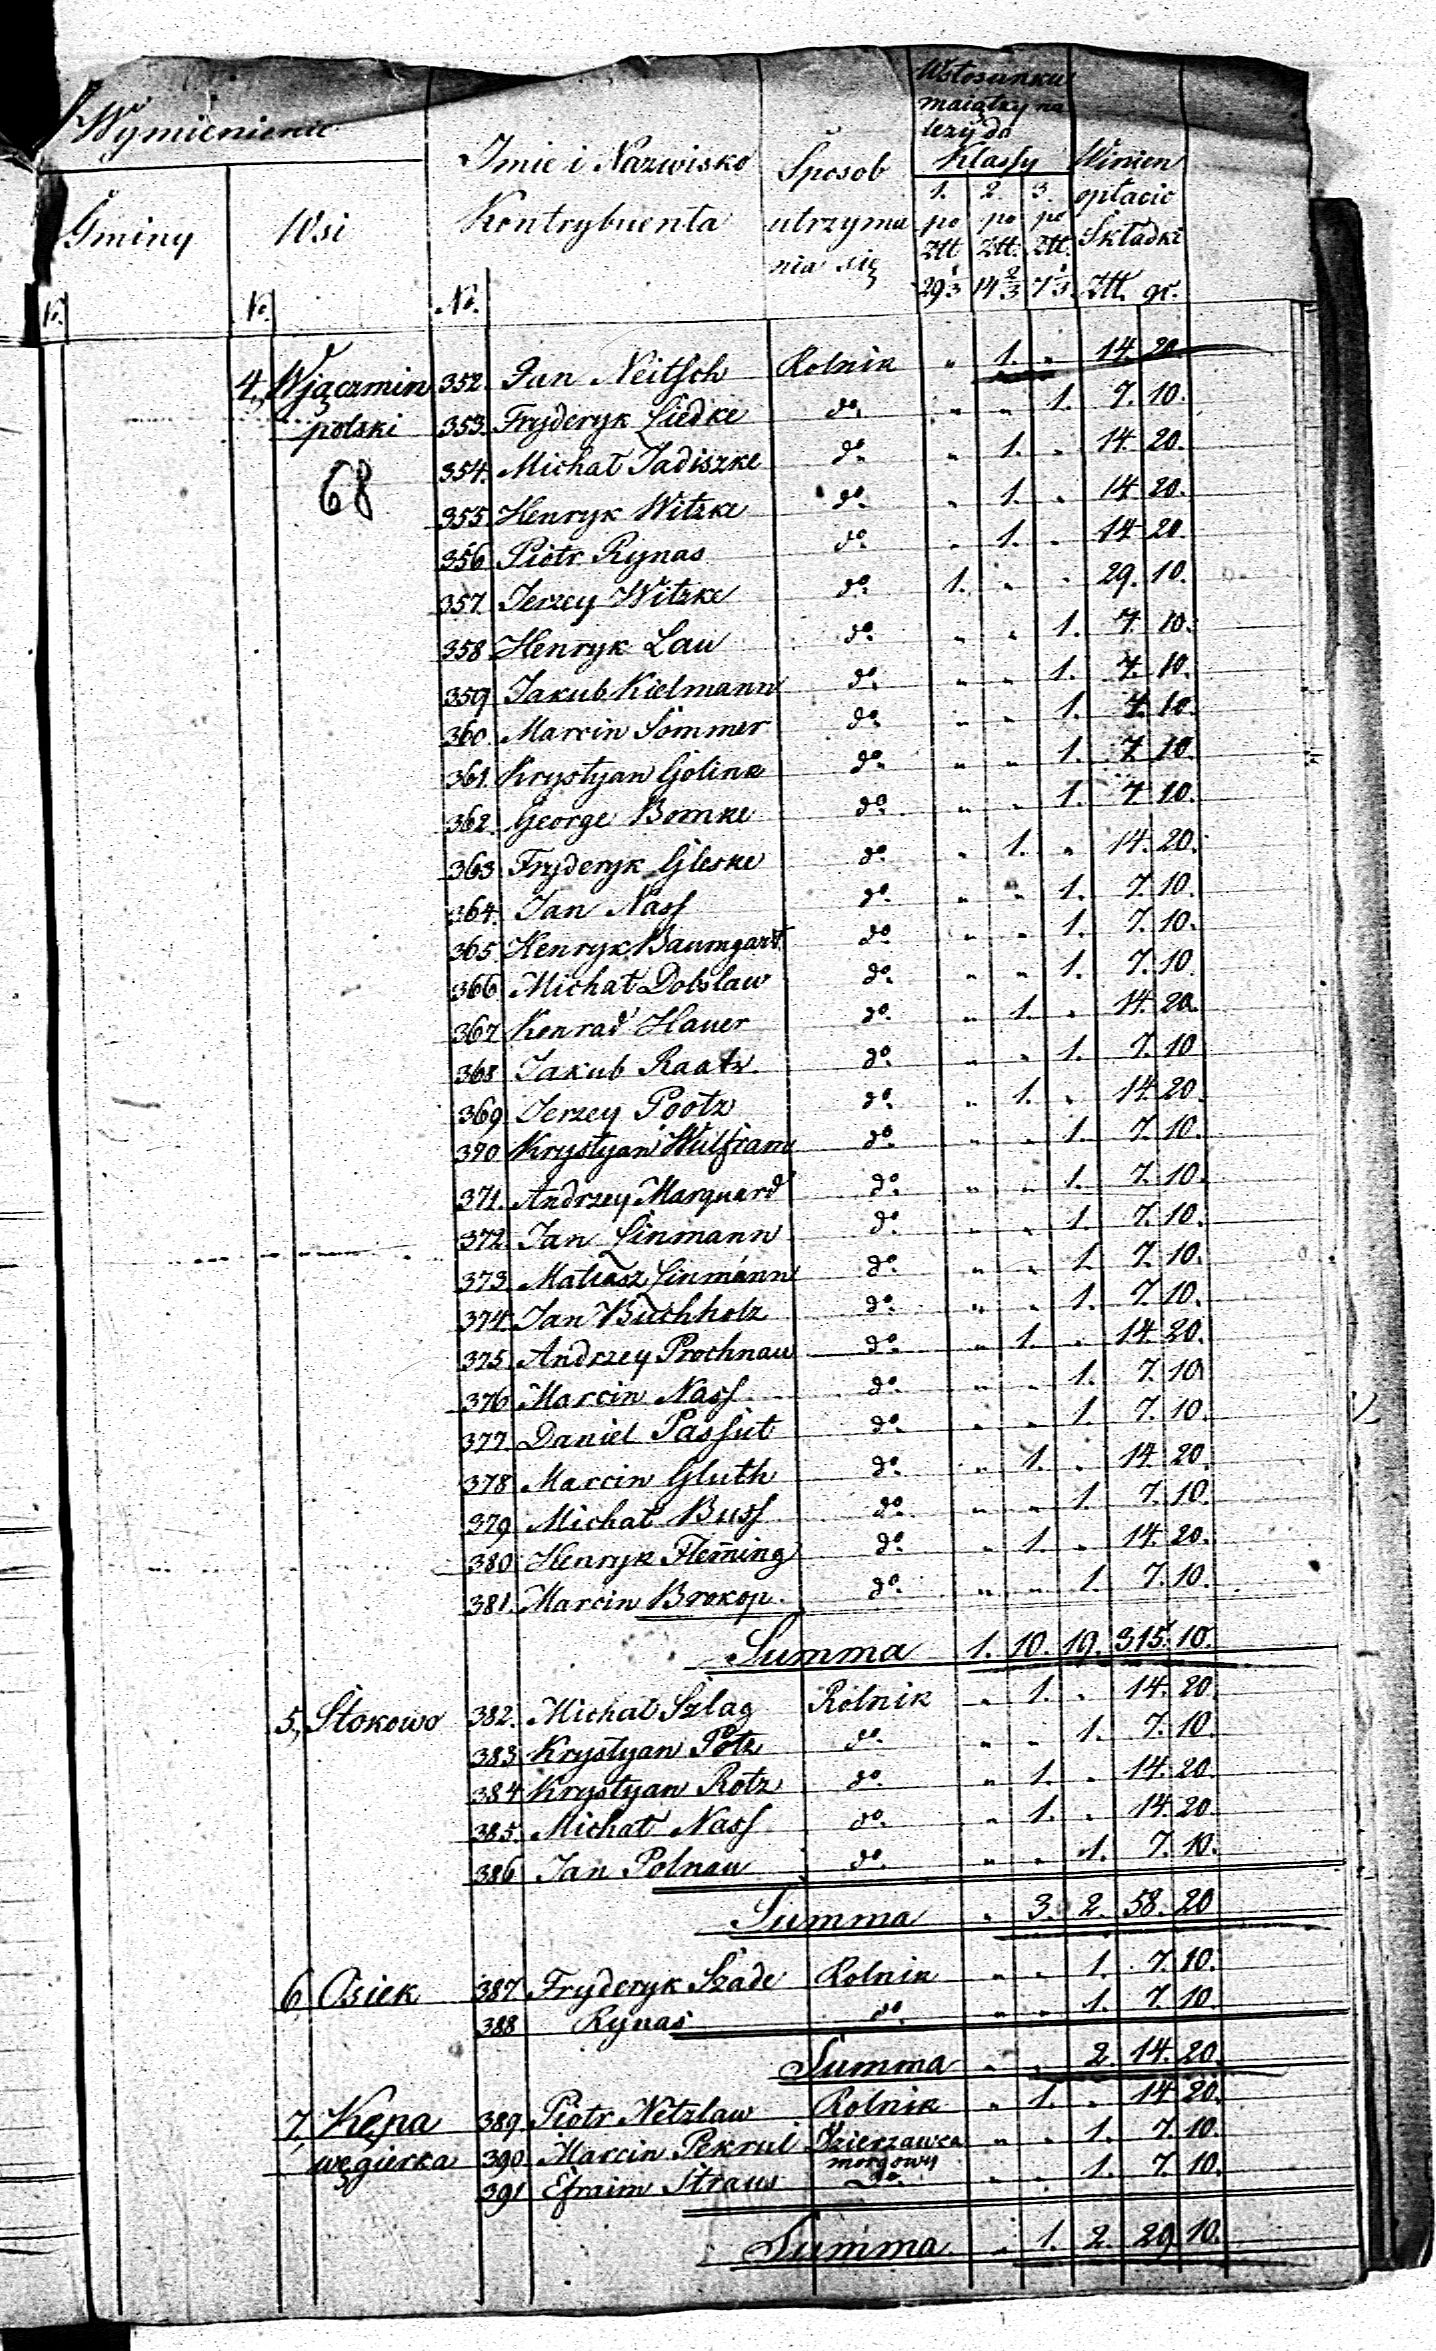 Wymienienie
Gminy
Wsi
Imie i Nazwisko
Kontrybuenta
Sposob
utrzyma
nia się
Wstosunku
maiątku na
leży do
Klassy
1. 2. 3.
po po po
Ztt Ztt. Ztt.
29 1/3 14 2/3 7 1/3
Winien
opłacić
Składki
Ztt. gr.
No. No. No.
4, Wjączmin 352. Jan Neitsch Rolnik " 1. " 14. 20.
polski 353. Fryderyk Liedke do. " " 1. 7. 10.
354. Michał Jadiszke do. " 1. " 14. 20.
68
355 Henryk Witzke do. " 1. " 14 20.
356 Piotr Rynas do. " 1. " 14 20.
357 Jerzey Witzke do. 1. " " 29. 10.
358 Henryk Lau do. " " 1. 7. 10.
359 Jakub Kielmann do. " " 1. 7. 10.
360. Marcin Sommer do. " " 1. 7. 10.
361. Krystyan Golink do. " " 1. 7. 10.
362. George Bomke do. " " 1. 7. 10.
363 Fryderyk Gleske do. " 1. " 14. 20.
364. Jan Nass do. " " 1. 7. 10.
365 Henryk Baumgart do. " " 1. 7. 10.
366 Michał Dobslaw do. " " 1. 7. 10.
367 Konrad Hauer do. " 1. " 14. 20.
368 Jakub Raatz do. " " 1. 7. 10
369 Jerzey Pootz do. " 1. " 14 20.
370 Krystyan Wilfram do. " " 1. 7. 10.
371. Andrzey Marquard do. " " 1. 7. 10.
372. Jan Linmann do. " " 1. 7. 10.
373. Matiasz Linmann do. " " 1. 7. 10.
374. Jan Buchholz do. " " 1. 7. 10.
375 Andrzey Prochnau do. " 1. " 14. 20.
376 Marcin Nass do. " " 1. 7. 10
377. Daniel Passut do. " " 1. 7. 10.
378 Marcin Gluth do. " 1. " 14 20.
379 Michał Buss do. " " 1. 7. 10.
380 Henryk Fleming do. " 1. " 14. 20.
381. Marcin Brokop. do. " " 1. 7. 10.
Summa 1. 10. 19. 315. 10.
5, Stokowo 382. Michał Szlag Rolnik " 1. " 14. 20.
383 Krystyan Potz do. " " 1. 7. 10
384 Krystyan Rotz do. " 1. " 14. 20.
385. Michał Nass do. " 1. " 14. 20
386 Jan Polnau do. " " 1. 7. 10.
Summa " 3. 2. 58. 20
6, Osiek 387 Fryderyk Szade Rolnik " " 1. 7. 10.
388 Rynas do. " " 1. 7. 10.
Summa " " 2. 14. 20.
7. Kępa 389. Piotr Netzlaw Rolnik " 1. " 14 20.
węgierka 390 Marcin Pekrul Dzierzawca " " 1. 7. 10.
morgowy
391 Efraim Straus do. " " 1. 7. 10.
Summa " 1. 2. 29. 10.